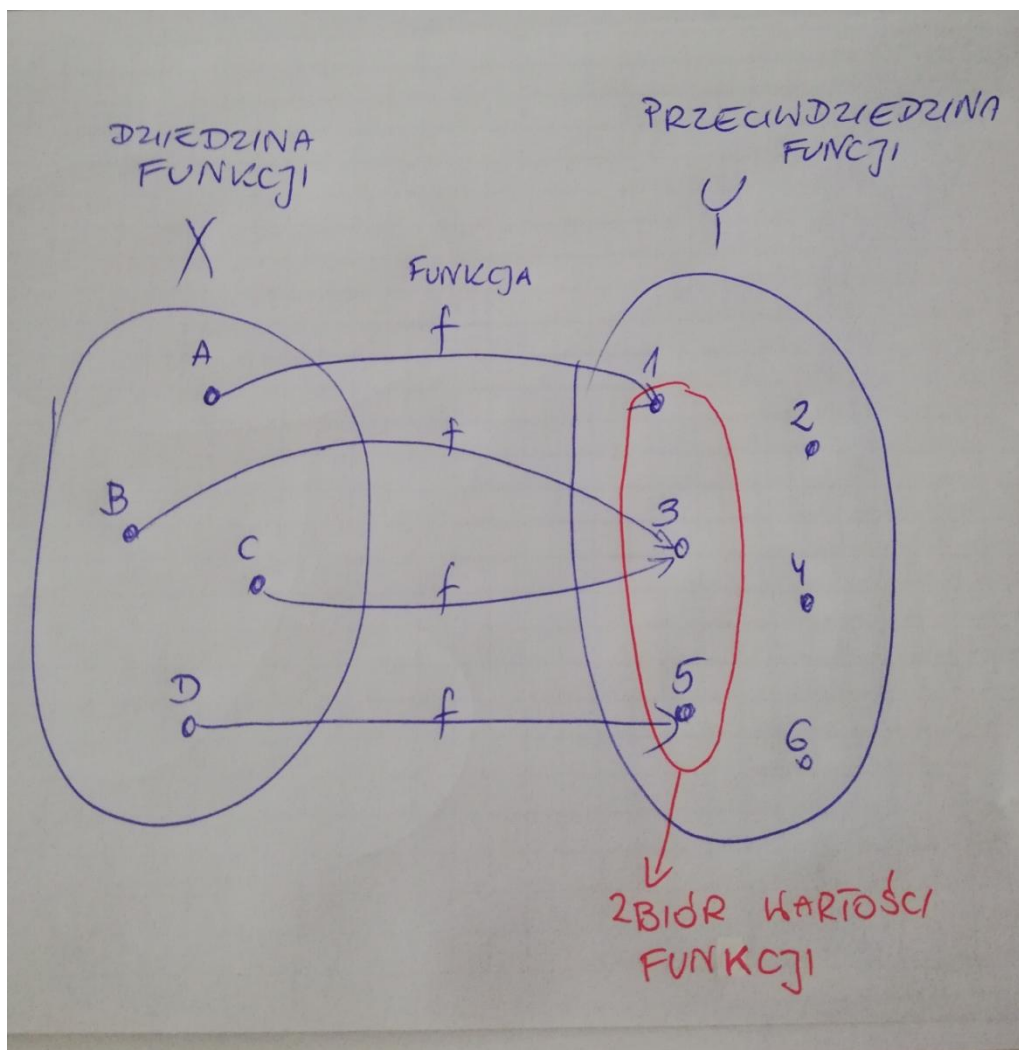 DZIEDZINA
FUNKCJI
X
PRZECIWDZIEDZINA
FUNCJI
Y
FUNKCJA
f
A
1
2
f
B
3
C
4
f
D
5
f
6
ZBIÓR WARTOŚCI
FUNKCJI